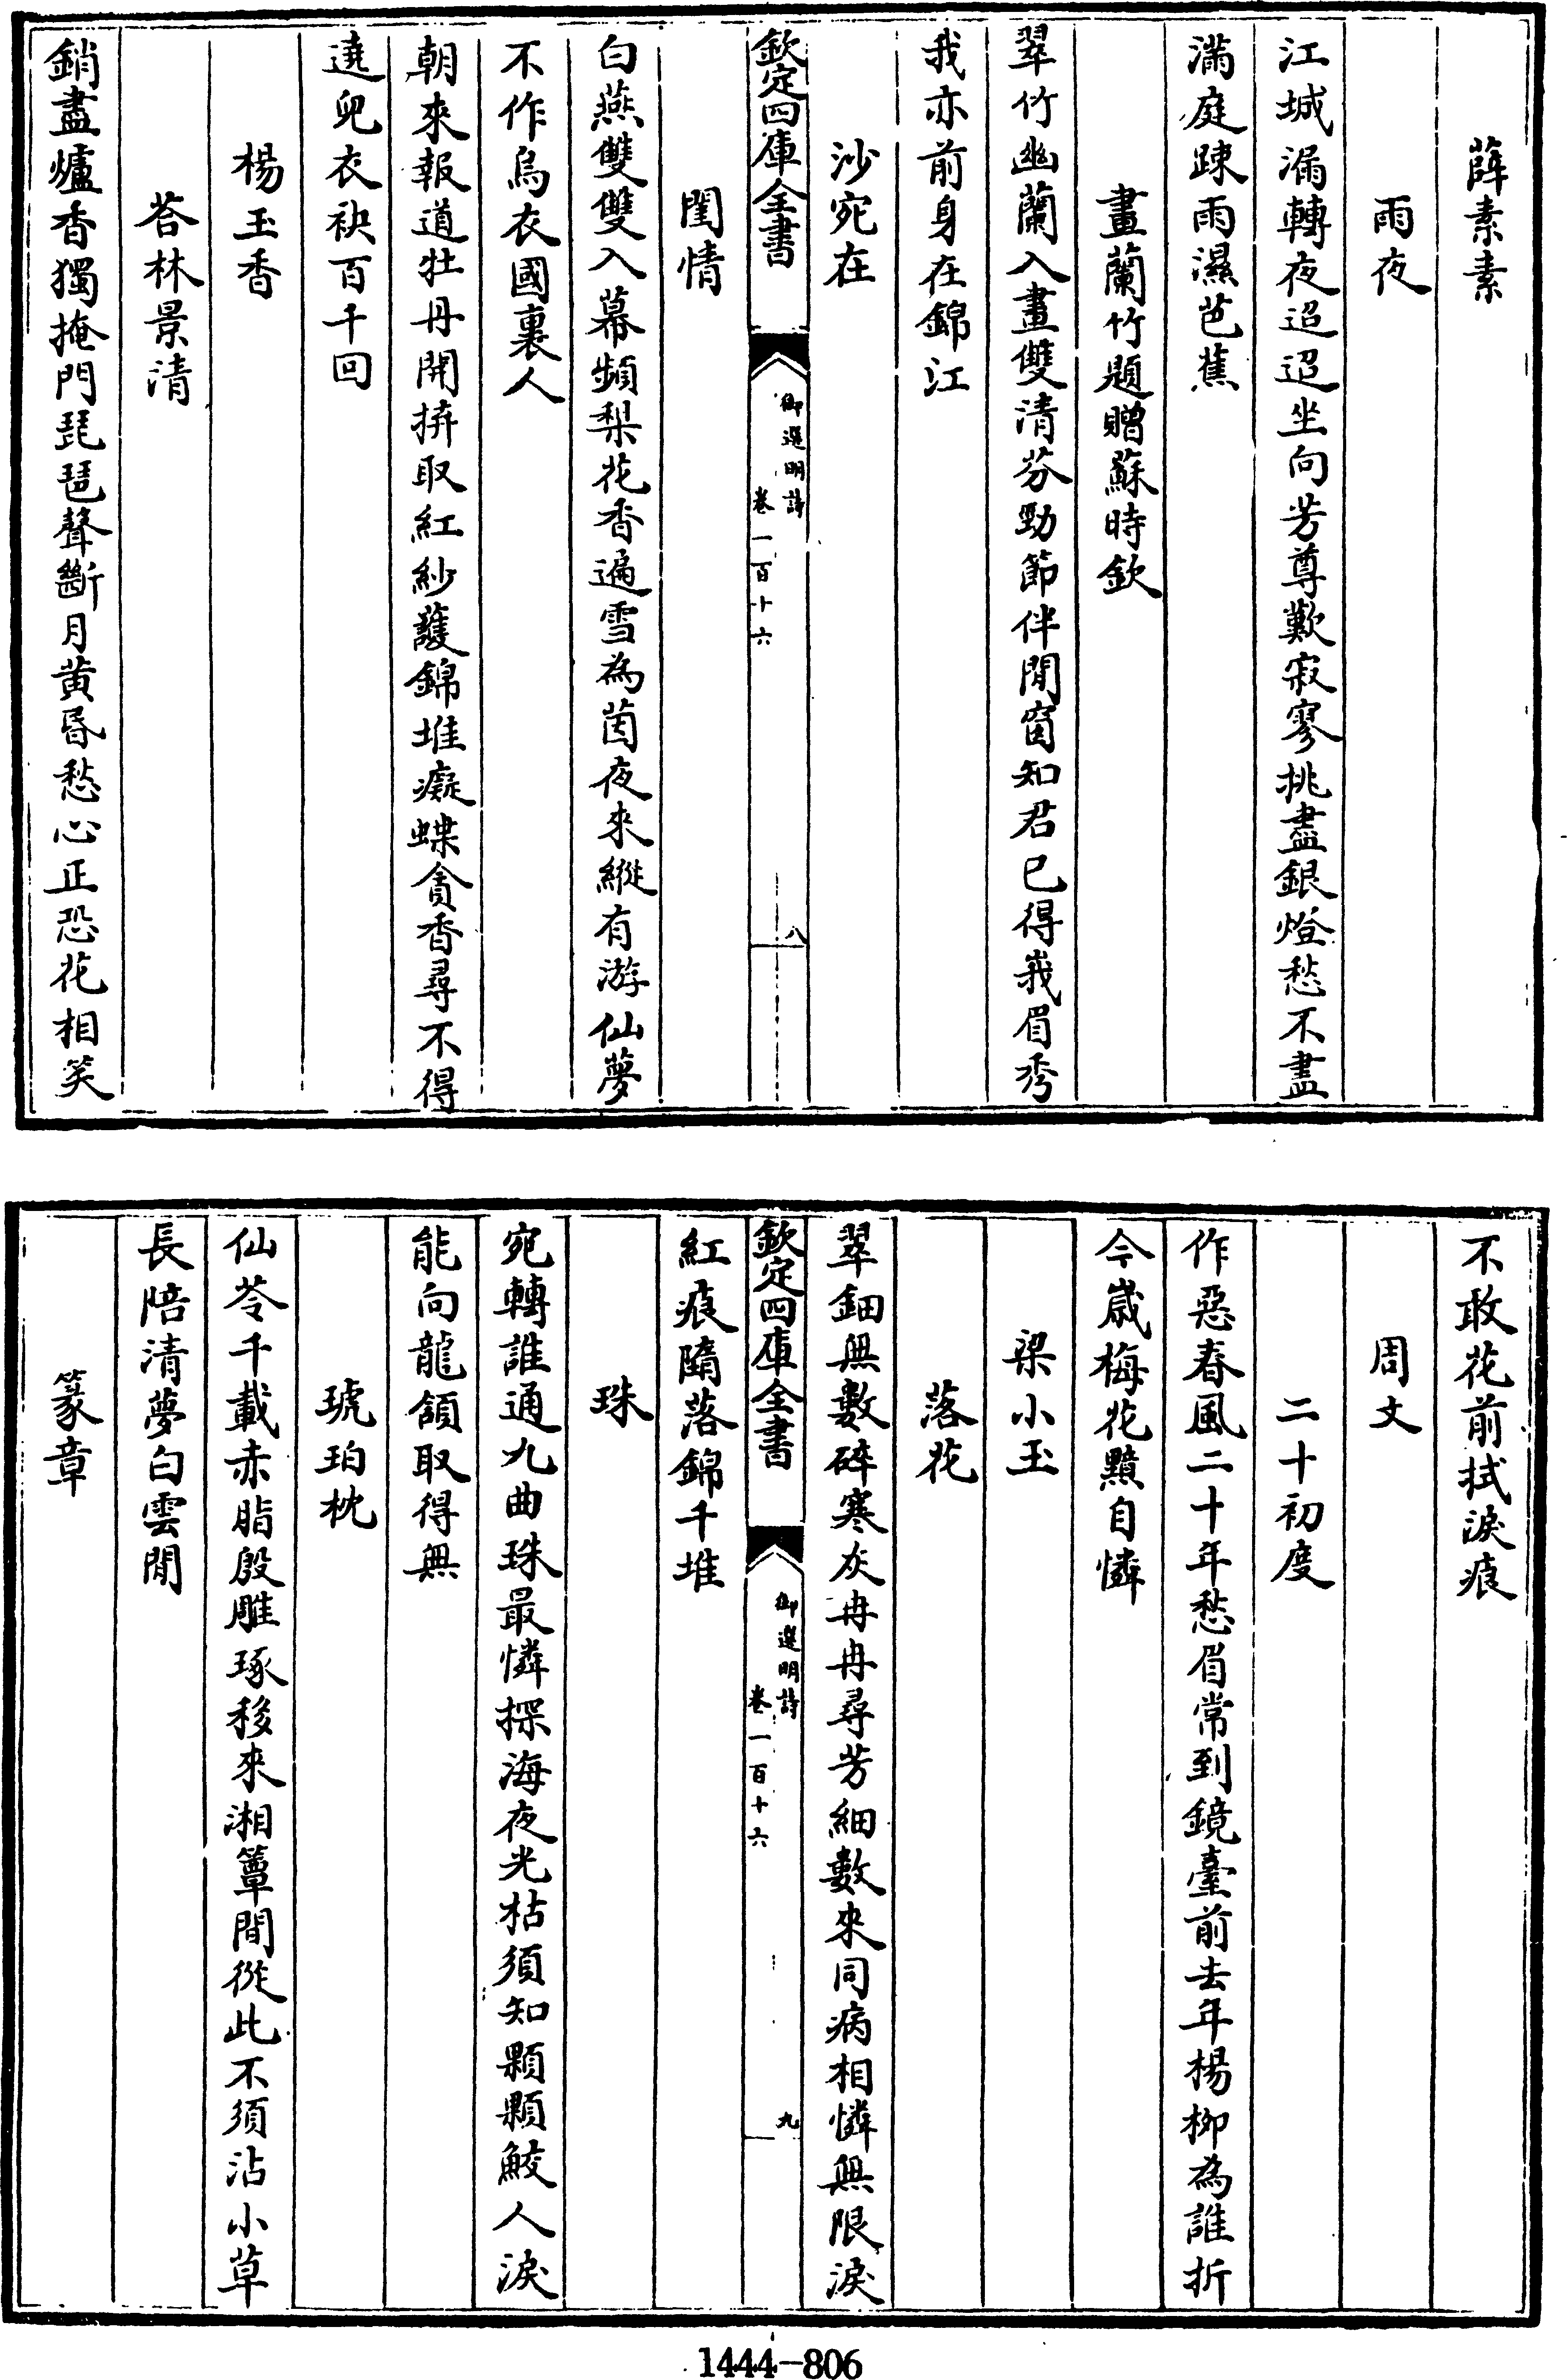 薛素素
雨夜
江城漏轉夜迢迢坐向芳尊歎寂寥挑盡銀燈愁不盡
滿庭踈雨濕芭蕉
畫蘭竹題贈蘇時欽
翠竹幽蘭入畫雙清芬勁節伴閒窗知君已得峩眉秀
我亦前身在錦江
沙宛在
欽定四庫全書
御選明詩
卷一百十六
八
閨情
白燕雙雙入幕頻梨花香遍雪為茵夜來縱有游仙夢
不作烏衣國裏人
朝來報道牡丹開拚取紅紗護錦堆癡蝶貪香尋不得
遶兜衣袂百千回
楊玉香
荅林景清
銷盡爐香獨掩門琵琶聲斷月黃昏愁心正恐花相笑
不敢花前拭淚痕
周文
二十初度
作惡春風二十年愁眉常到鏡臺前去年楊柳為誰折
今歲梅花黯自憐
梁小玉
落花
翠鈿無數碎寒灰冉冉尋芳細數來同病相憐無限淚
欽定四庫全書
御選明詩
卷一百十六
九
紅痕隨落錦千堆
珠
宛轉誰通九曲珠最憐探海夜光枯須知顆顆鮫人淚
能向龍頷取得無
琥珀枕
仙苓千載赤脂殷雕琢移來湘簟間從此不須沾小草
長陪清夢白雲閒
篆章
1444-806